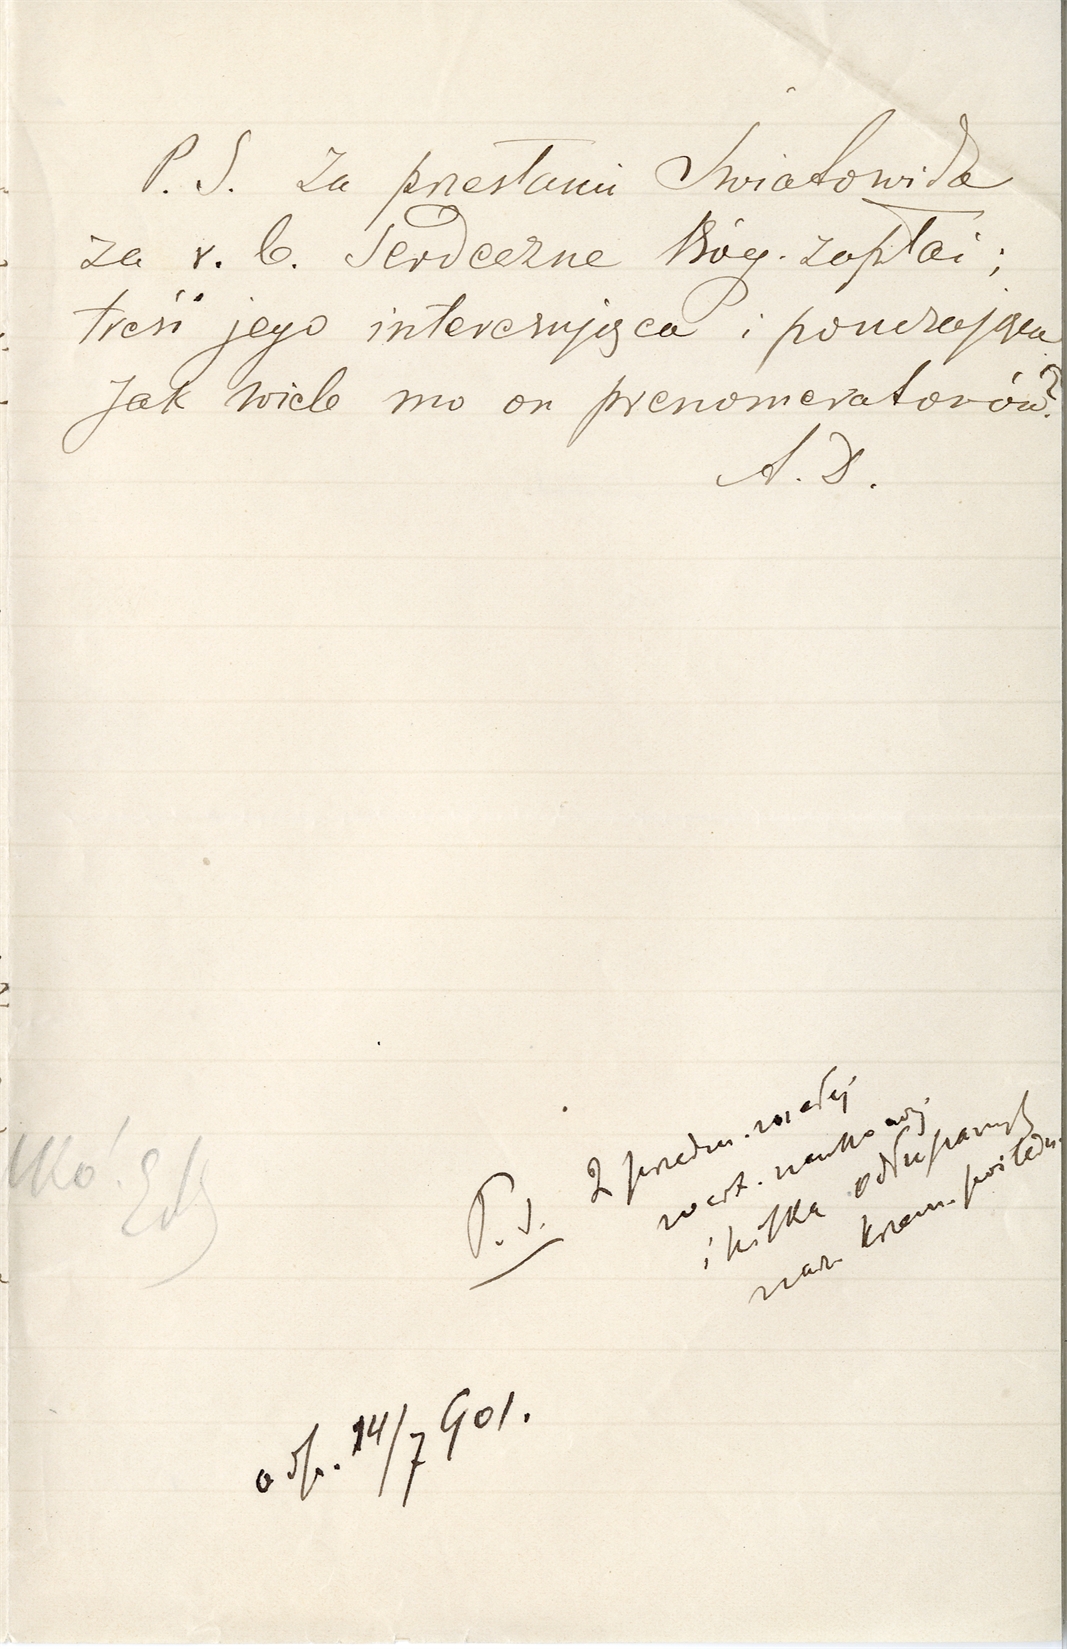 P. S. Za przesłanie Swiatowida
za r. b. serdeczne Bóg. zapłać;
treść jego interesująca i pouczająca
jak wiele ma on prenomeratorów?
A. D.
P. S.
2 przedm. małej
wart. naukowej
i kilka odłupanych
narz. krzem. pośledn.
odp. 14/7 901.